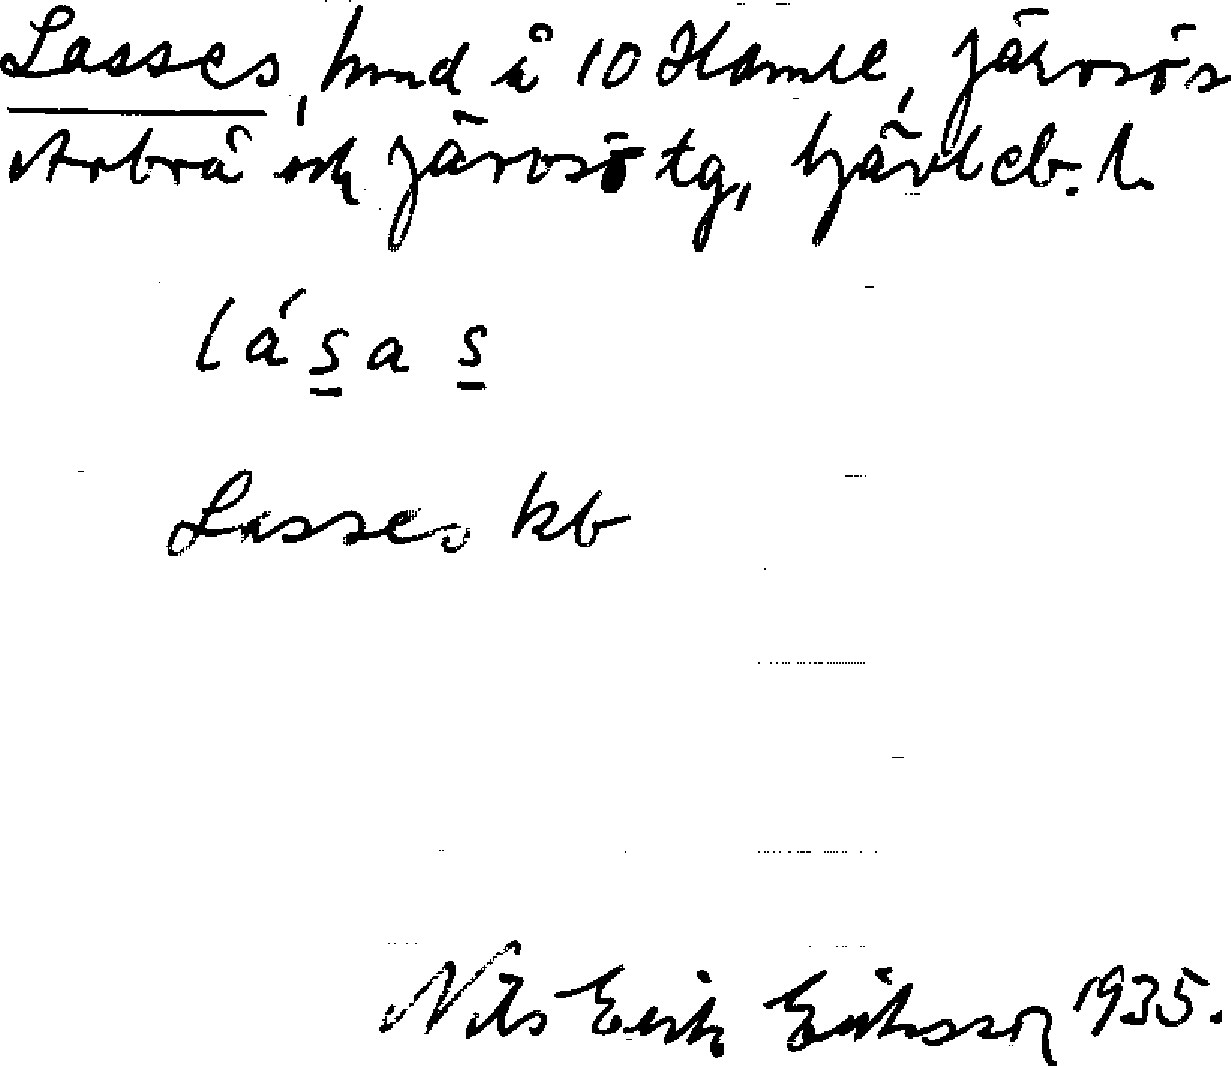 Lasses, hmd å 10 Hamre, Järvsö s
Arbrå och Järvsö tg, Gävleb. l.
lásas
Lasses kb
Nils Erik Eriksson 1935.